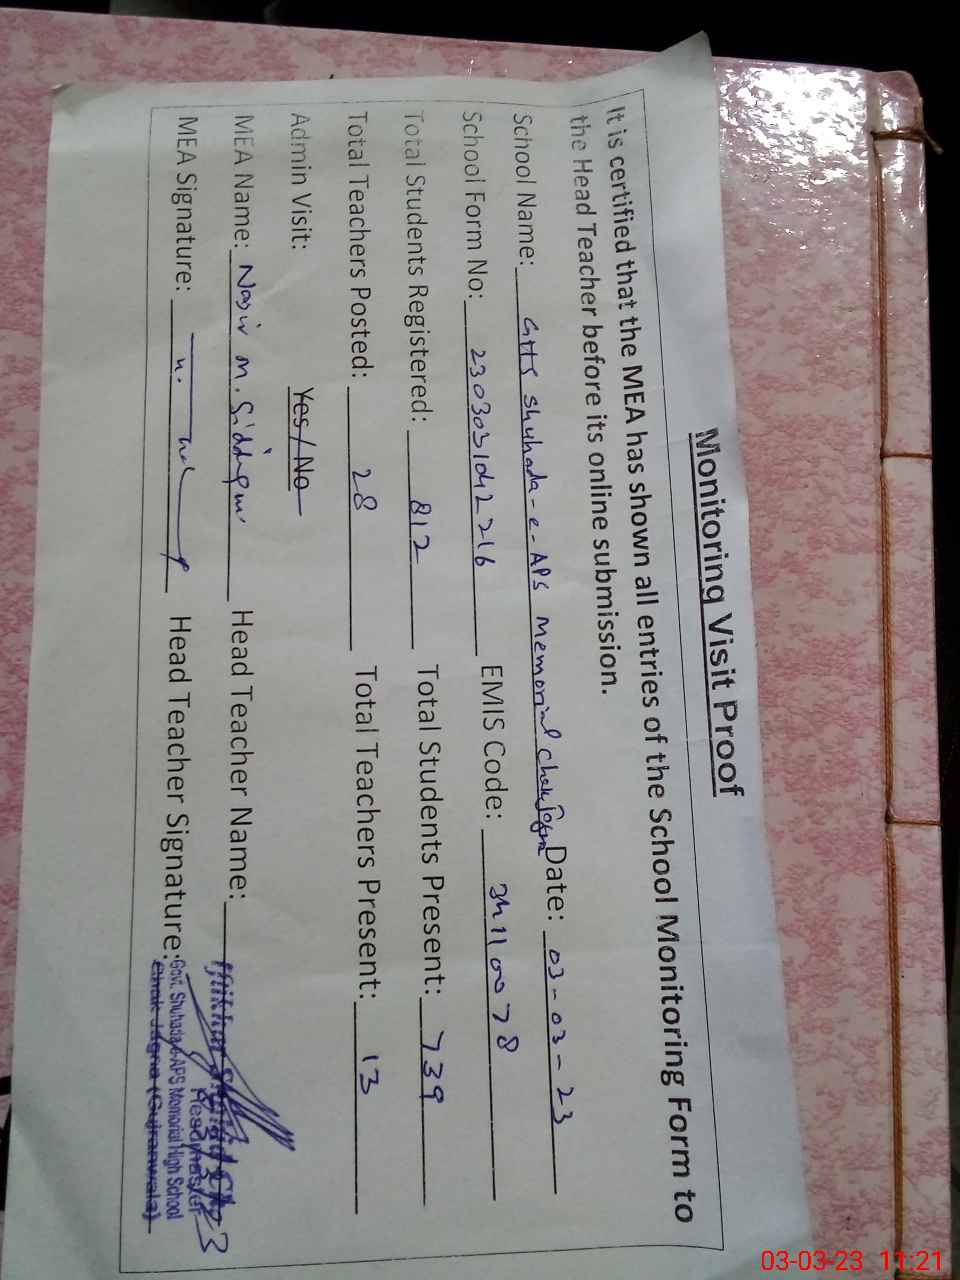 Monitoring Visit Proof
It is certified that the MEA has shown all entries of the School Monitoring Form to
the Head Teacher before its online submission.
School Name: GHS Shuhada-e-APS Memorial Date: 03-03-23
School Form No: EMIS Code: 34110078
Total Students Registered: 812 Total Students Present: 739
Total Teachers Posted: 28 Total Teachers Present: 13
Admin Visit: Yes/No
MEA Name: Nasir M. Siddiqui Head Teacher Name:
MEA Signature: Head Teacher Signature:
Headmaster
Govt. Shuhada-e-APS Memorial High School
(Gujranwala)
03-03-23 11:21